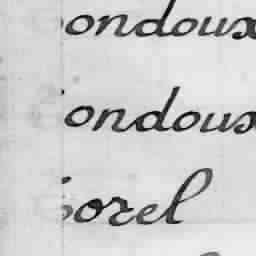 ondoux
ondoux
orel